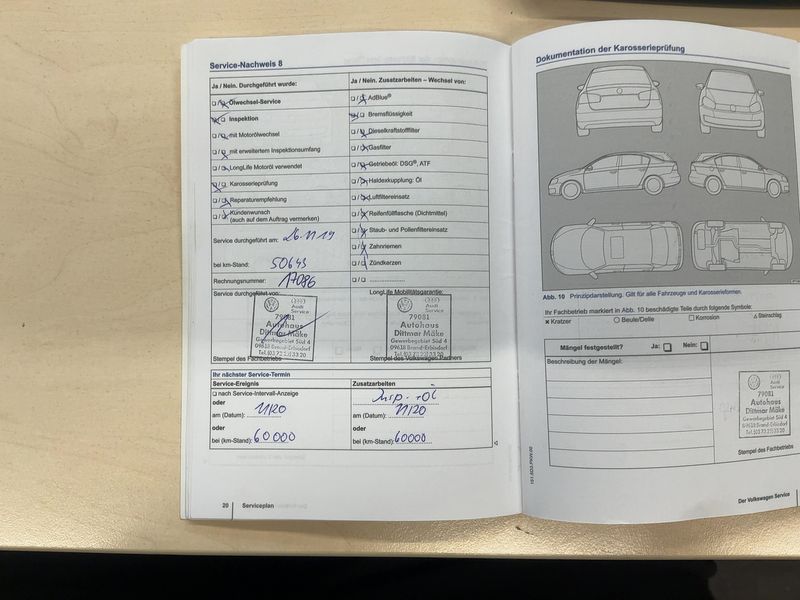 Service-Nachweis 8
Ja / Nein. Durchgeführt wurde:
Ölwechsel-Service
Inspektion
mit Motorölwechsel
mit erweitertem Inspektionsumfang
LongLife Motoröl verwendet
Karosserieprüfung
Reparaturempfehlung
Kundenwunsch
(auch auf dem Auftrag vermerken)
Service durchgeführt am: 26.11.19
bei km-Stand: 50643
Rechnungsnummer: 17086
Service durchgeführt von:
Audi
Service
79081
Autohaus
Dittmar Mäke
Gewerbegebiet Süd 4
09618 Brand-Erbisdorf
Stempel des Fachbetriebs
Ja / Nein. Zusatzarbeiten – Wechsel von:
AdBlue®
Bremsflüssigkeit
Dieselkraftstofffilter
Gasfilter
Getriebeöl: DSG®, ATF
Haldexkupplung: Öl
Luftfiltereinsatz
Reifenfüllflasche (Dichtmittel)
Staub- und Pollenfiltereinsatz
Zahnriemen
Zündkerzen
LongLife Mobilitätsgarantie:
Audi
Service
79081
Autohaus
Dittmar Mäke
Gewerbegebiet Süd 4
09618 Brand-Erbisdorf
Stempel des Volkswagen Partners
Ihr nächster Service-Termin
Service-Ereignis
nach Service-Intervall-Anzeige
oder
am (Datum): 11/20
oder
bei (km-Stand): 60000
Zusatzarbeiten
Insp. + Öl
am (Datum): 11/20
oder
bei (km-Stand): 60000
20 Serviceplan
Dokumentation der Karosserieprüfung
Abb. 10 Prinzipdarstellung. Gilt für alle Fahrzeuge und Karosserieformen.
Ihr Fachbetrieb markiert in Abb. 10 beschädigte Teile durch folgende Symbole:
x Kratzer ○ Beule/Delle □ Korrosion △ Steinschlag
Mängel festgestellt? Ja: Nein:
Beschreibung der Mängel:
Audi
Service
79081
Autohaus
Dittmar Mäke
Gewerbegebiet Süd 4
09618 Brand-Erbisdorf
Stempel des Fachbetriebs
Der Volkswagen Service